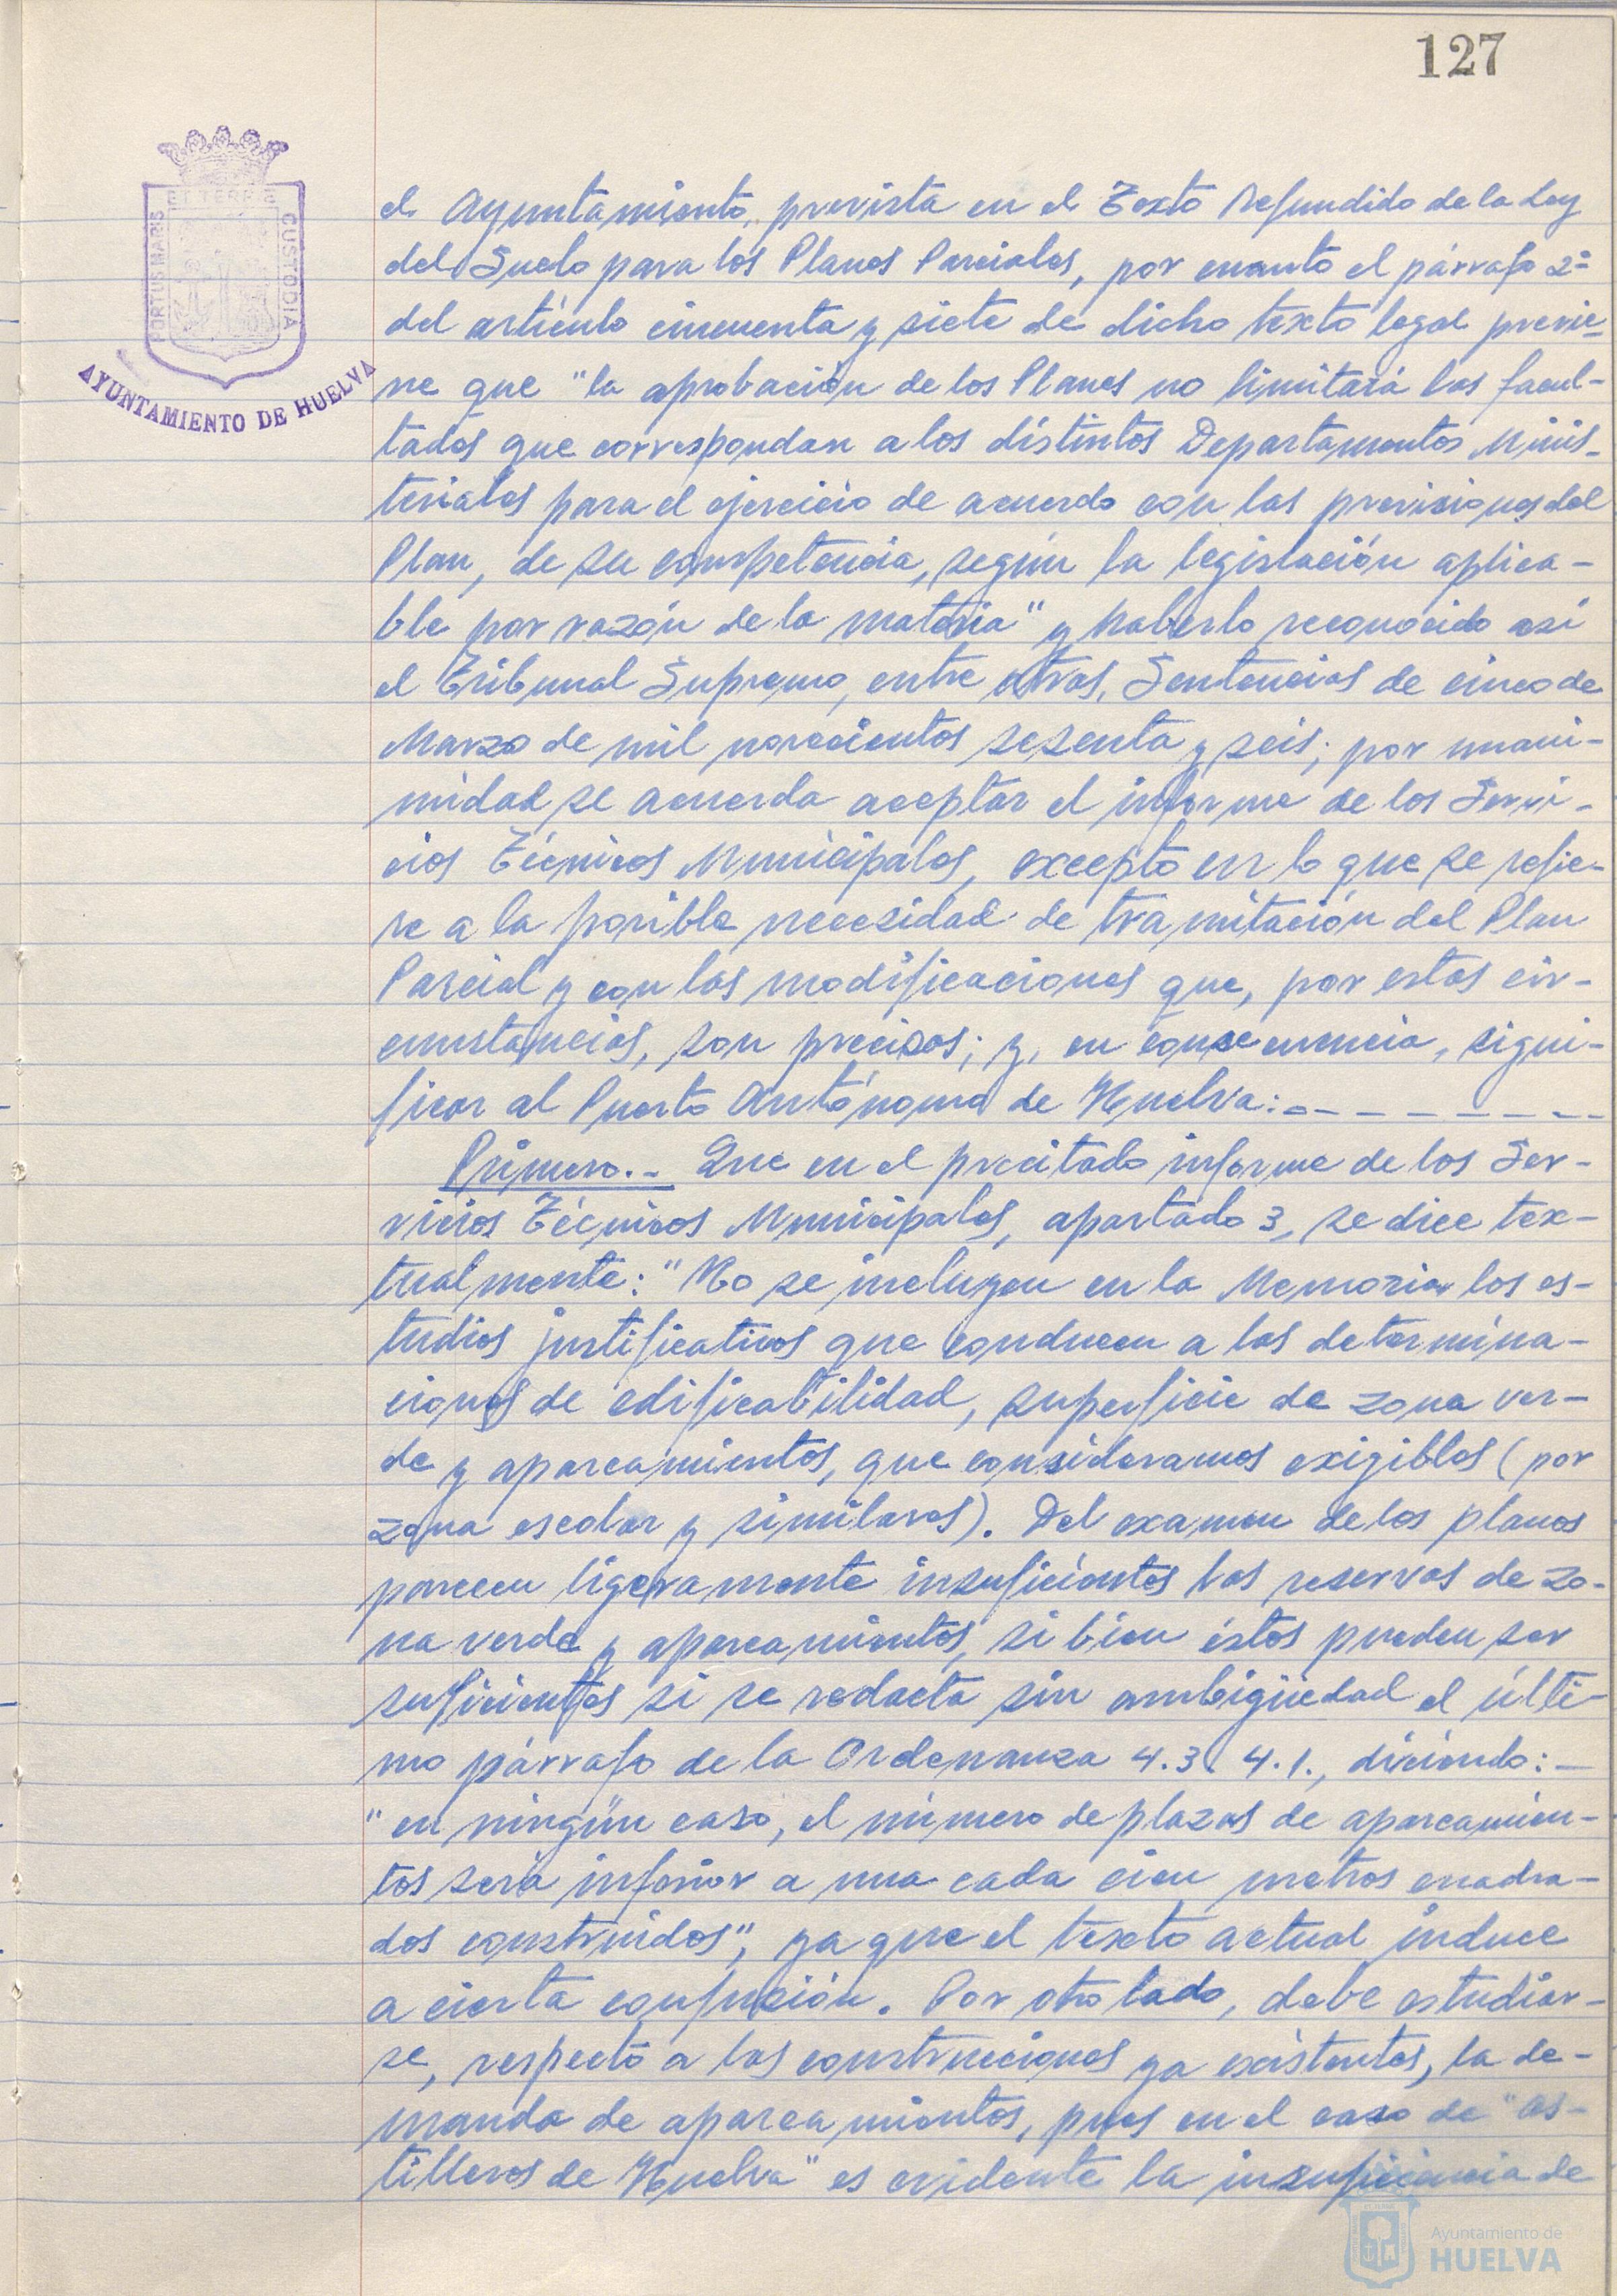 127
ET TERRE
PORTUS MARIS
CUSTODIA
AYUNTAMIENTO DE HUELVA
el Ayuntamiento, prevista en el Texto Refundido de la Ley
del Suelo para los Planes Parciales, por cuanto el párrafo 2º
del artículo cincuenta y siete de dicho texto legal previe-
ne que "la aprobación de los Planes no limitará las facul-
tades que correspondan a los distintos Departamentos Minis-
teriales para el ejercicio de acuerdo con las previsiones del
Plan, de su competencia, según la legislación aplica-
ble por razón de la materia" y haberlo reconocido así
el Tribunal Supremo, entre otras, Sentencias de cinco de
Marzo de mil novecientos sesenta y seis; por unani-
midad se acuerda aceptar el informe de los Servi-
cios Técnicos Municipales, excepto en lo que se refie-
re a la posible necesidad de tramitación del Plan
Parcial y con las modificaciones que, por estas cir-
cunstancias, son precisas; y, en consecuencia, signi-
ficar al Puerto Autónomo de Huelva:.- - - - - - -
Primero.- Que en el precitado informe de los Ser-
vicios Técnicos Municipales, apartado 3, se dice tex-
tualmente: "No se incluyen en la Memoria los es-
tudios justificativos que conducen a las determina-
ciones de edificabilidad, superficie de zona ver-
de y aparcamientos, que consideramos exigibles (por
zona escolar y similares). Del examen de los planos
parecen ligeramente insuficientes las reservas de zo-
na verde y aparcamientos, si bien éstos pueden ser
suficientes si se redacta sin ambigüedad el últi-
mo párrafo de la Ordenanza 4.3.4.1., diciendo: -
"en ningún caso, el número de plazas de aparcamien-
tos será inferior a una cada cien metros cuadra-
dos construidos", ya que el texto actual induce
a cierta confusión. Por otro lado, debe estudiar-
se, respecto a las construcciones ya existentes, la de-
manda de aparcamientos, pues en el caso de "As-
tilleros de Huelva" es evidente la insuficiencia de
Ayuntamiento de
HUELVA